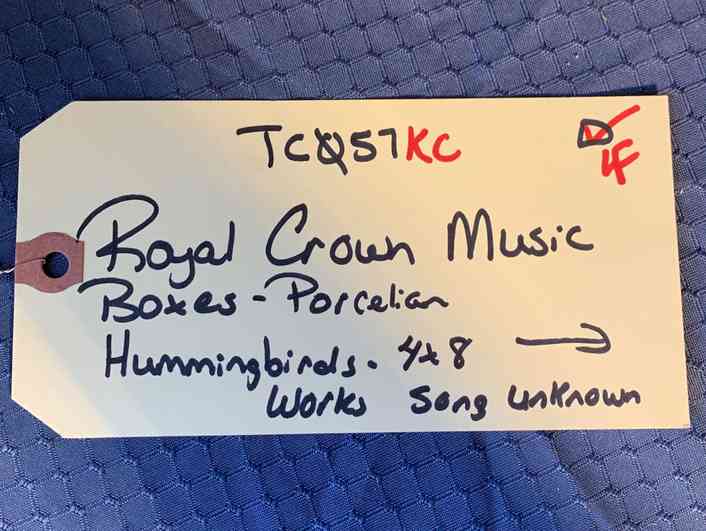 TCQ57KC
D 4F
Royal Crown Music
Boxes - Porcelian
Hummingbirds. 4x8 →
Works Song unknown